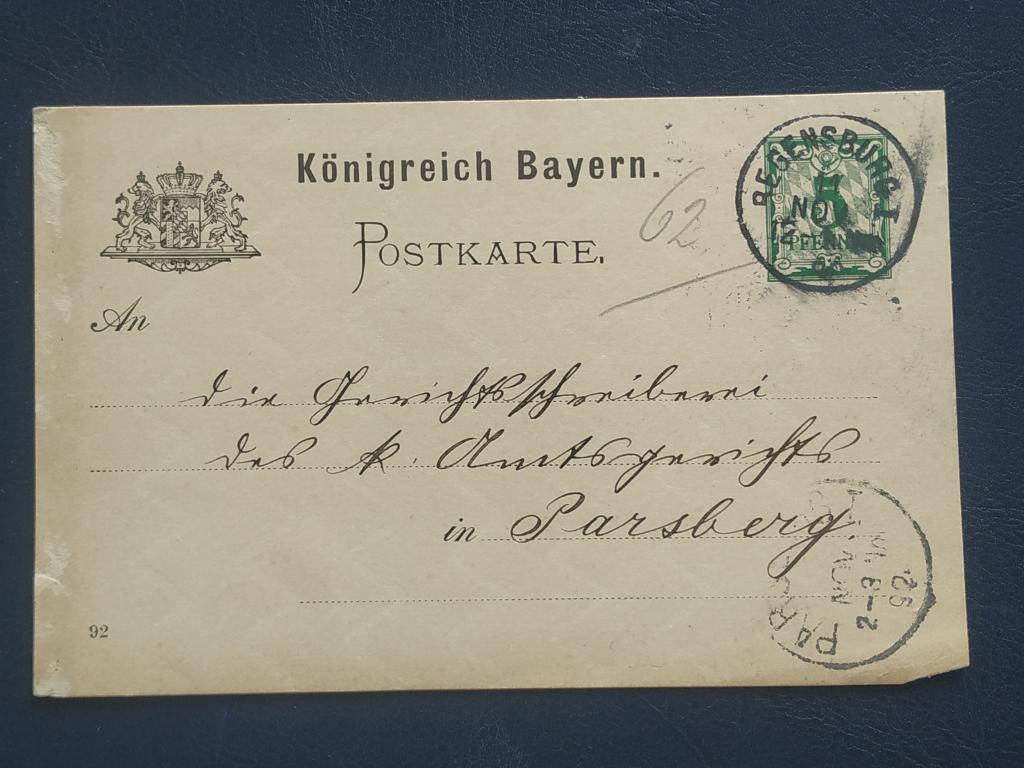 Königreich Bayern.
POSTKARTE.
62.
REGENSBURG I
NOV
5
PFENNIG
An
die Gerichtsschreiberei
des k. Amtsgerichts
in Parsberg
NOV.
2-3
92.
92